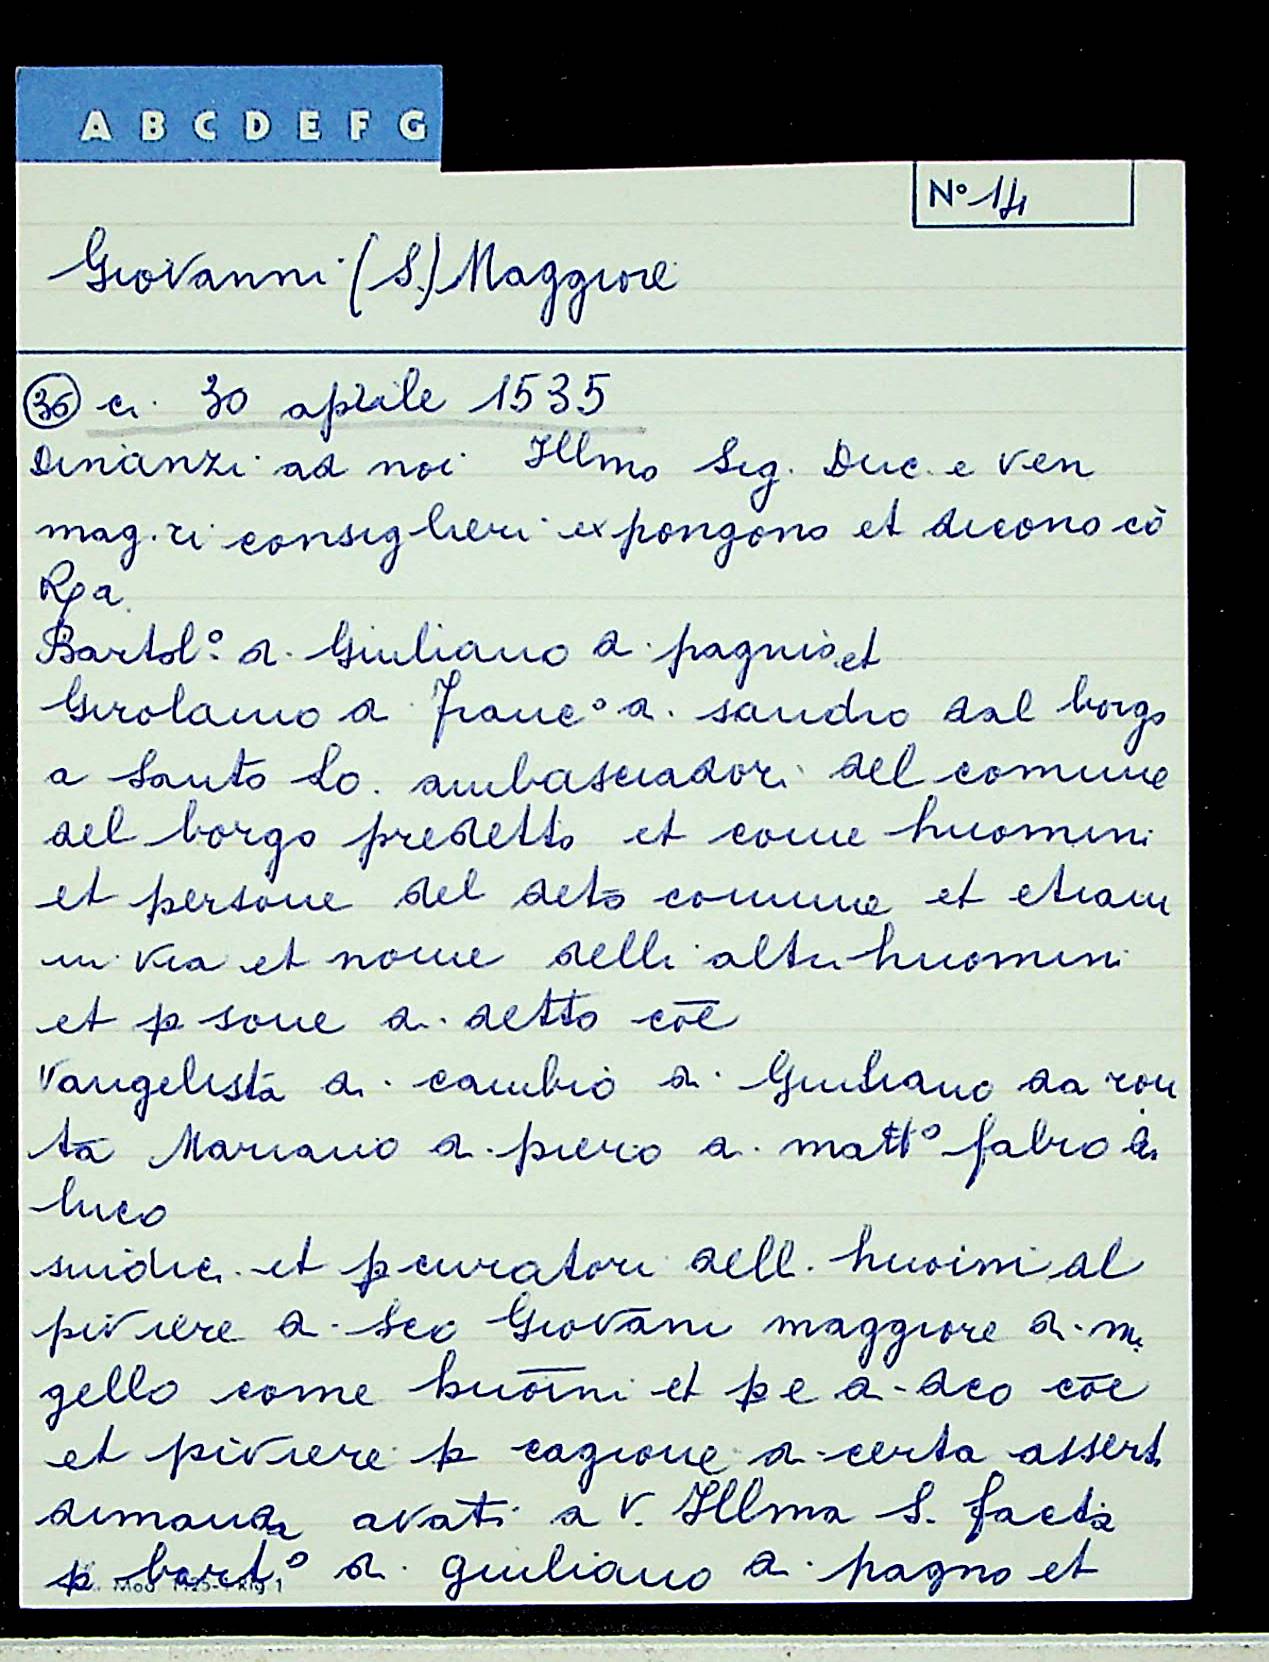 A B C D E F G
N° 14
Giovanni (S.) Maggiore
36 c. 30 aprile 1535
Dinanzi ad noi Illmo Sig. Duc. e ven
mag.ri consiglieri expongono et dicono cō
Rpa
Bartol° d. Giuliano d. pagnio et
Girolamo d. Franc° d. sandro dal borgo
a Santo Lo. ambasciadori del comune
del borgo predetto et come huomini
et persone del deto comune et etiam
in via et nome delli altri huomini
et p sone d. detto cōe
Vangelista d. cambio d. Giuliano da ron
ta Mariano d. piero d. matt° fabro
luco
sindic. et pcuratori dell. huoini del
piviere d. Sco Giovāni maggiore d. m.
gello come huōini et p e d. dco cōe
et piviere p cagione d. certa assert.
dimanda avati a V. Illma S. facta
p bart° d. giuliano d. pagno et